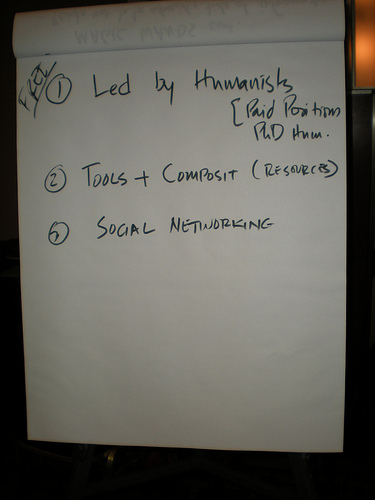 FREE
① Led by Humanists
[Paid Positions
PhD Hum.
② TOOLS + COMPOSIT (RESOURCES)
③ SOCIAL NETWORKING